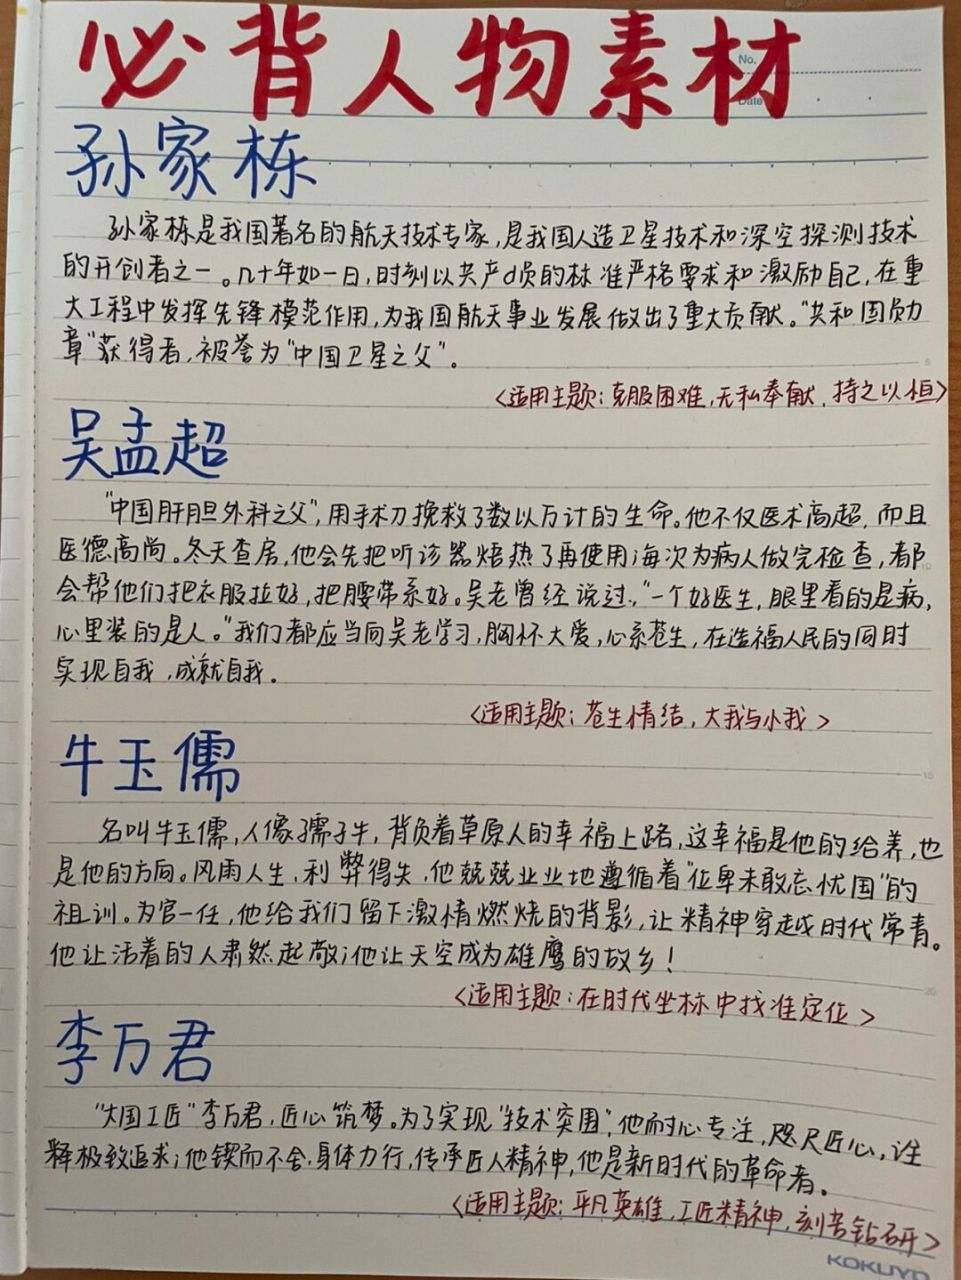 必背人物素材
No.
Date
孙家栋
孙家栋是我国著名的航天技术专家,是我国人造卫星技术和深空探测技术
的开创者之一。几十年如一日,时刻以共产d员的标准严格要求和激励自己,在重
大工程中发挥先锋模范作用,为我国航天事业发展做出了重大贡献。“共和国勋
章”获得者,被誉为“中国卫星之父”。
5
<适用主题:克服困难,无私奉献,持之以恒>
吴孟超
“中国肝胆外科之父”,用手术刀挽救了数以万计的生命。他不仅医术高超,而且
医德高尚。冬天查房,他会先把听诊器焐热了再使用;每次为病人做完检查,都
10
会帮他们把衣服拉好,把腰带系好。吴老曾经说过,“一个好医生,眼里看的是病,
心里装的是人。”我们都应当向吴老学习,胸怀大爱,心系苍生,在造福人民的同时
实现自我,成就自我。
<适用主题:苍生情结,大我与小我>
牛玉儒
15
名叫牛玉儒,人像孺子牛,背负着草原人的幸福上路,这幸福是他的给养,也
是他的方向。风雨人生,利弊得失,他兢兢业业地遵循着“位卑未敢忘忧国”的
祖训。为官一任,他给我们留下激情燃烧的背影,让精神穿越时代常青。
他让活着的人肃然起敬;他让天空成为雄鹰的故乡!
20
<适用主题:在时代坐标中找准定位>
李万君
“大国工匠”李万君,匠心筑梦。为了实现“技术突围”,他耐心专注,咫尺匠心,诠
释极致追求;他锲而不舍,身体力行,传承匠人精神,他是新时代的革命者。
<适用主题:平凡英雄,工匠精神,刻苦钻研>
KOKUYO